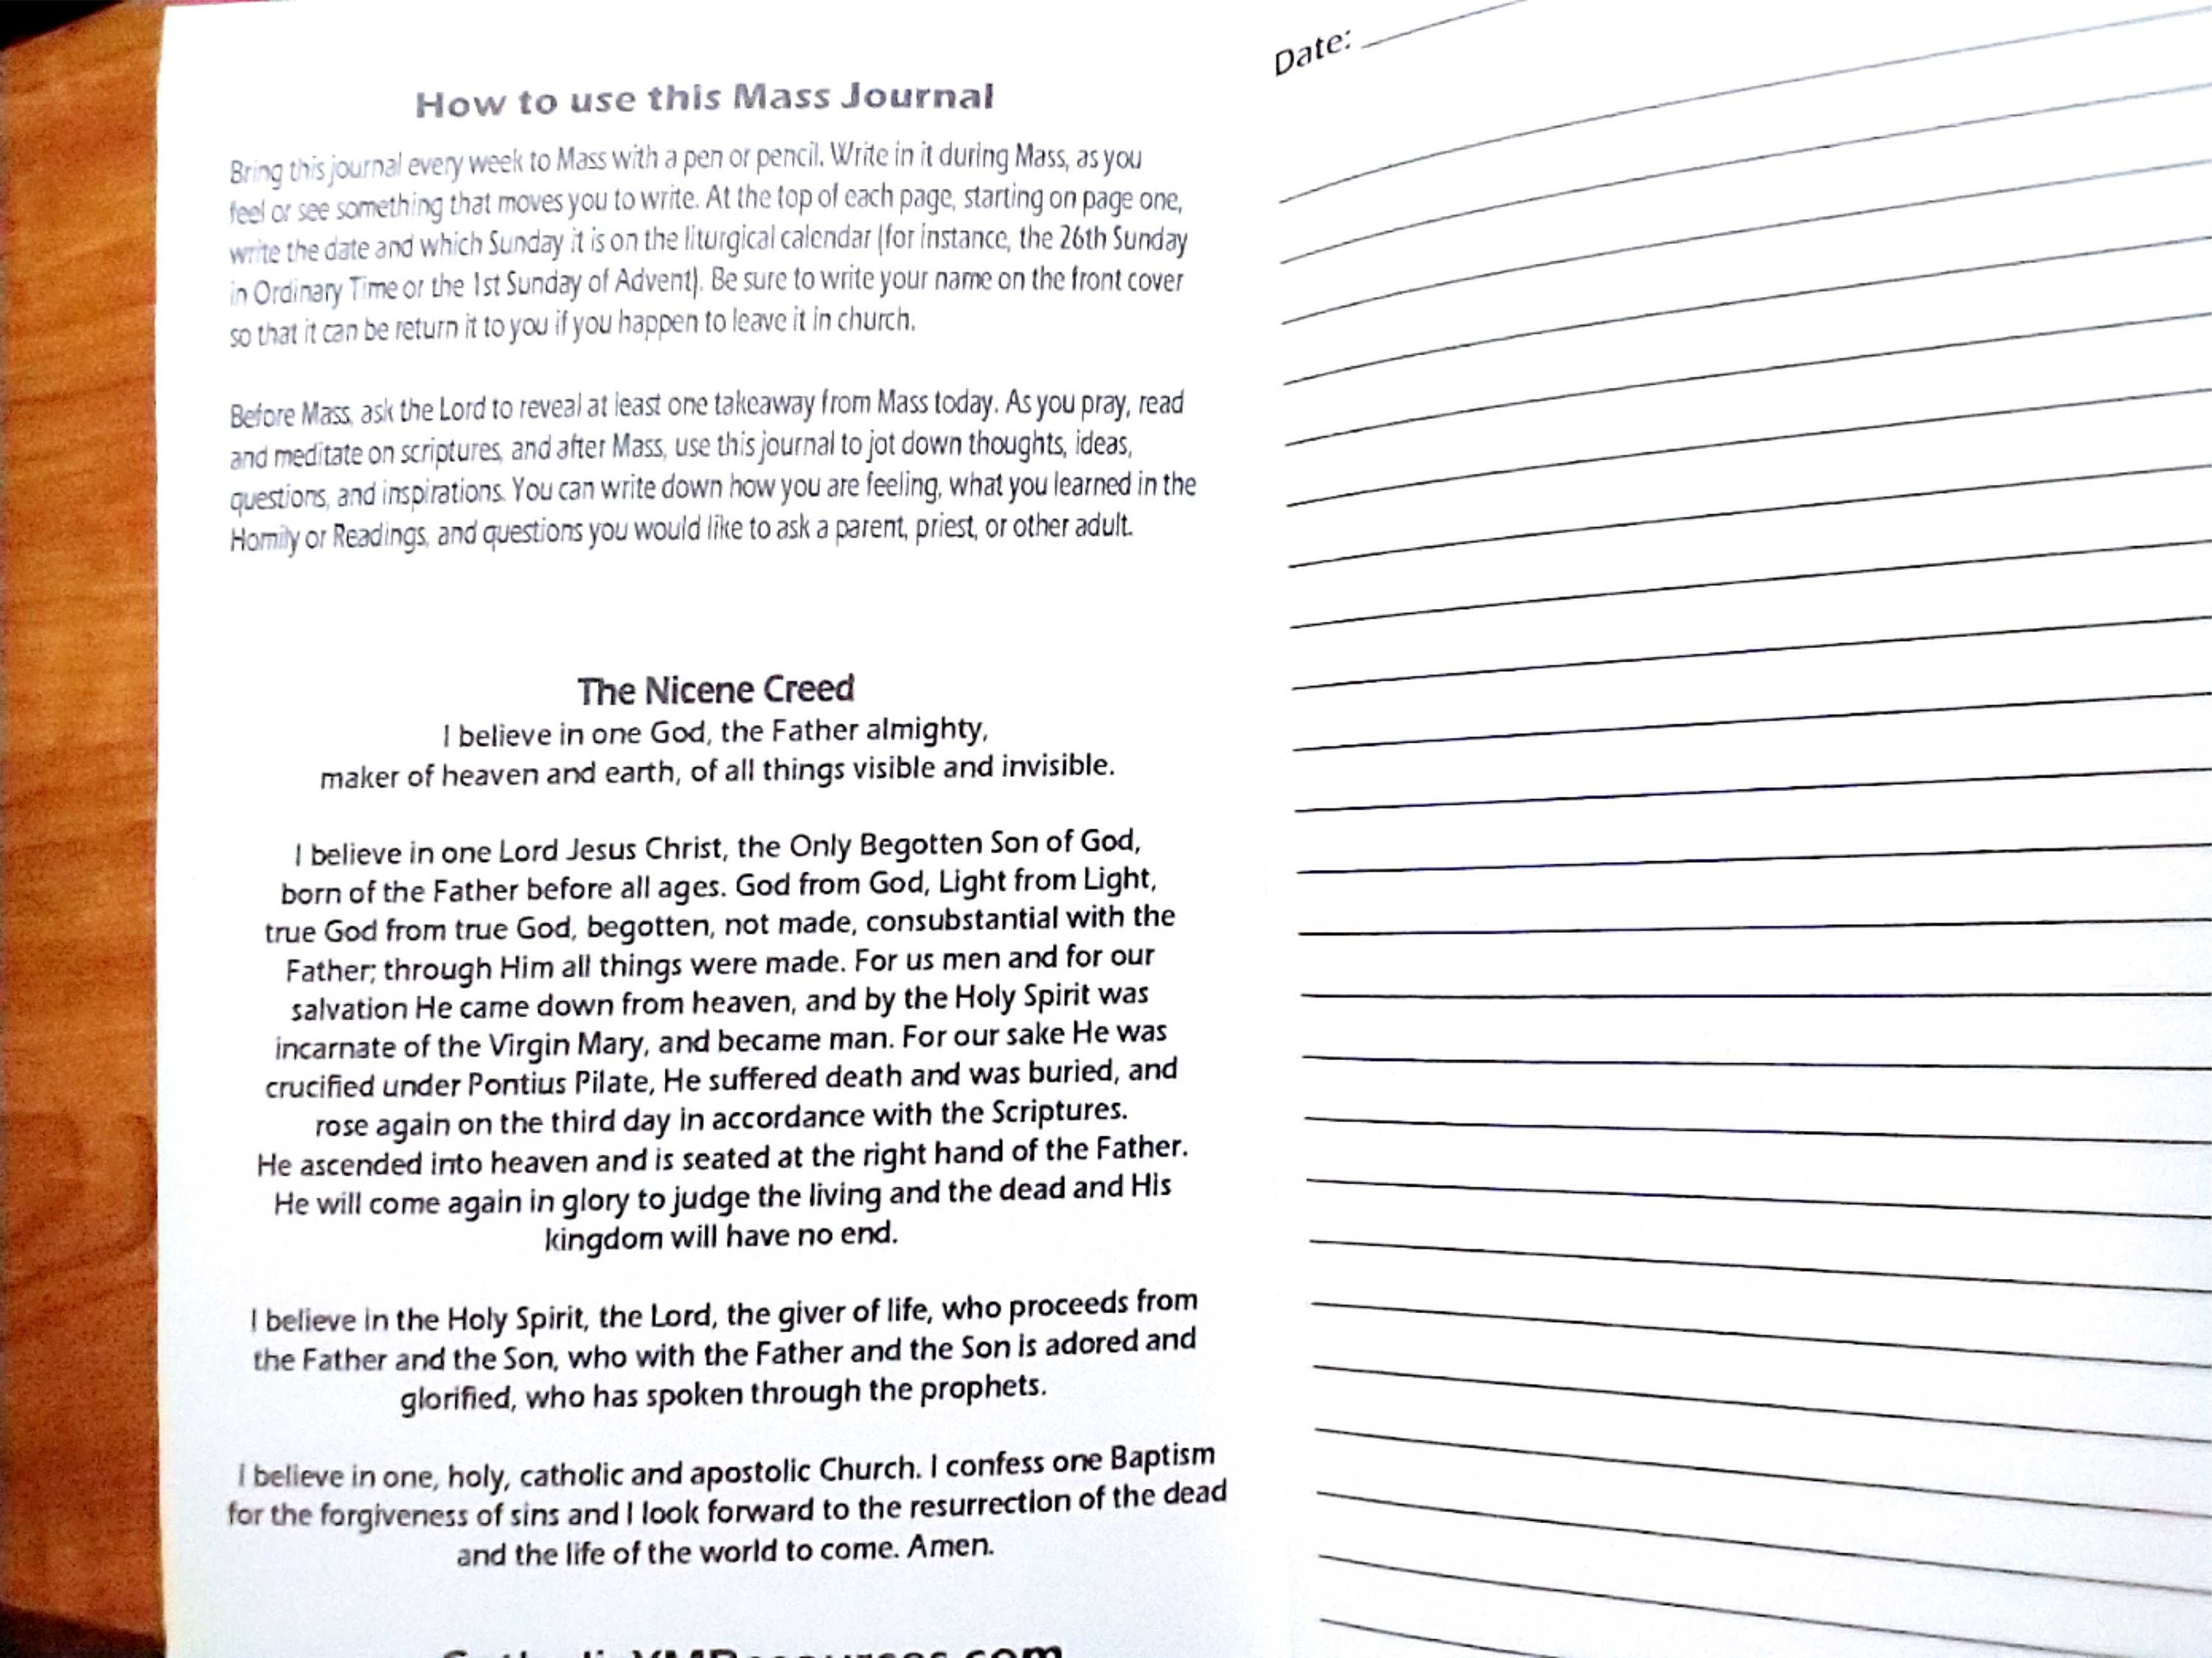 How to use this Mass Journal
Bring this journal every week to Mass with a pen or pencil. Write in it during Mass, as you
feel or see something that moves you to write. At the top of each page, starting on page one,
write the date and which Sunday it is on the liturgical calendar (for instance, the 26th Sunday
in Ordinary Time or the 1st Sunday of Advent). Be sure to write your name on the front cover
so that it can be return it to you if you happen to leave it in church.
Before Mass, ask the Lord to reveal at least one takeaway from Mass today. As you pray, read
and meditate on scriptures, and after Mass, use this journal to jot down thoughts, ideas,
questions, and inspirations. You can write down how you are feeling, what you learned in the
Homily or Readings, and questions you would like to ask a parent, priest, or other adult.
The Nicene Creed
I believe in one God, the Father almighty,
maker of heaven and earth, of all things visible and invisible.
I believe in one Lord Jesus Christ, the Only Begotten Son of God,
born of the Father before all ages. God from God, Light from Light,
true God from true God, begotten, not made, consubstantial with the
Father; through Him all things were made. For us men and for our
salvation He came down from heaven, and by the Holy Spirit was
incarnate of the Virgin Mary, and became man. For our sake He was
crucified under Pontius Pilate, He suffered death and was buried, and
rose again on the third day in accordance with the Scriptures.
He ascended into heaven and is seated at the right hand of the Father.
He will come again in glory to judge the living and the dead and His
kingdom will have no end.
I believe in the Holy Spirit, the Lord, the giver of life, who proceeds from
the Father and the Son, who with the Father and the Son is adored and
glorified, who has spoken through the prophets.
I believe in one, holy, catholic and apostolic Church. I confess one Baptism
for the forgiveness of sins and I look forward to the resurrection of the dead
and the life of the world to come. Amen.
CatholicYMResources.com
Date: